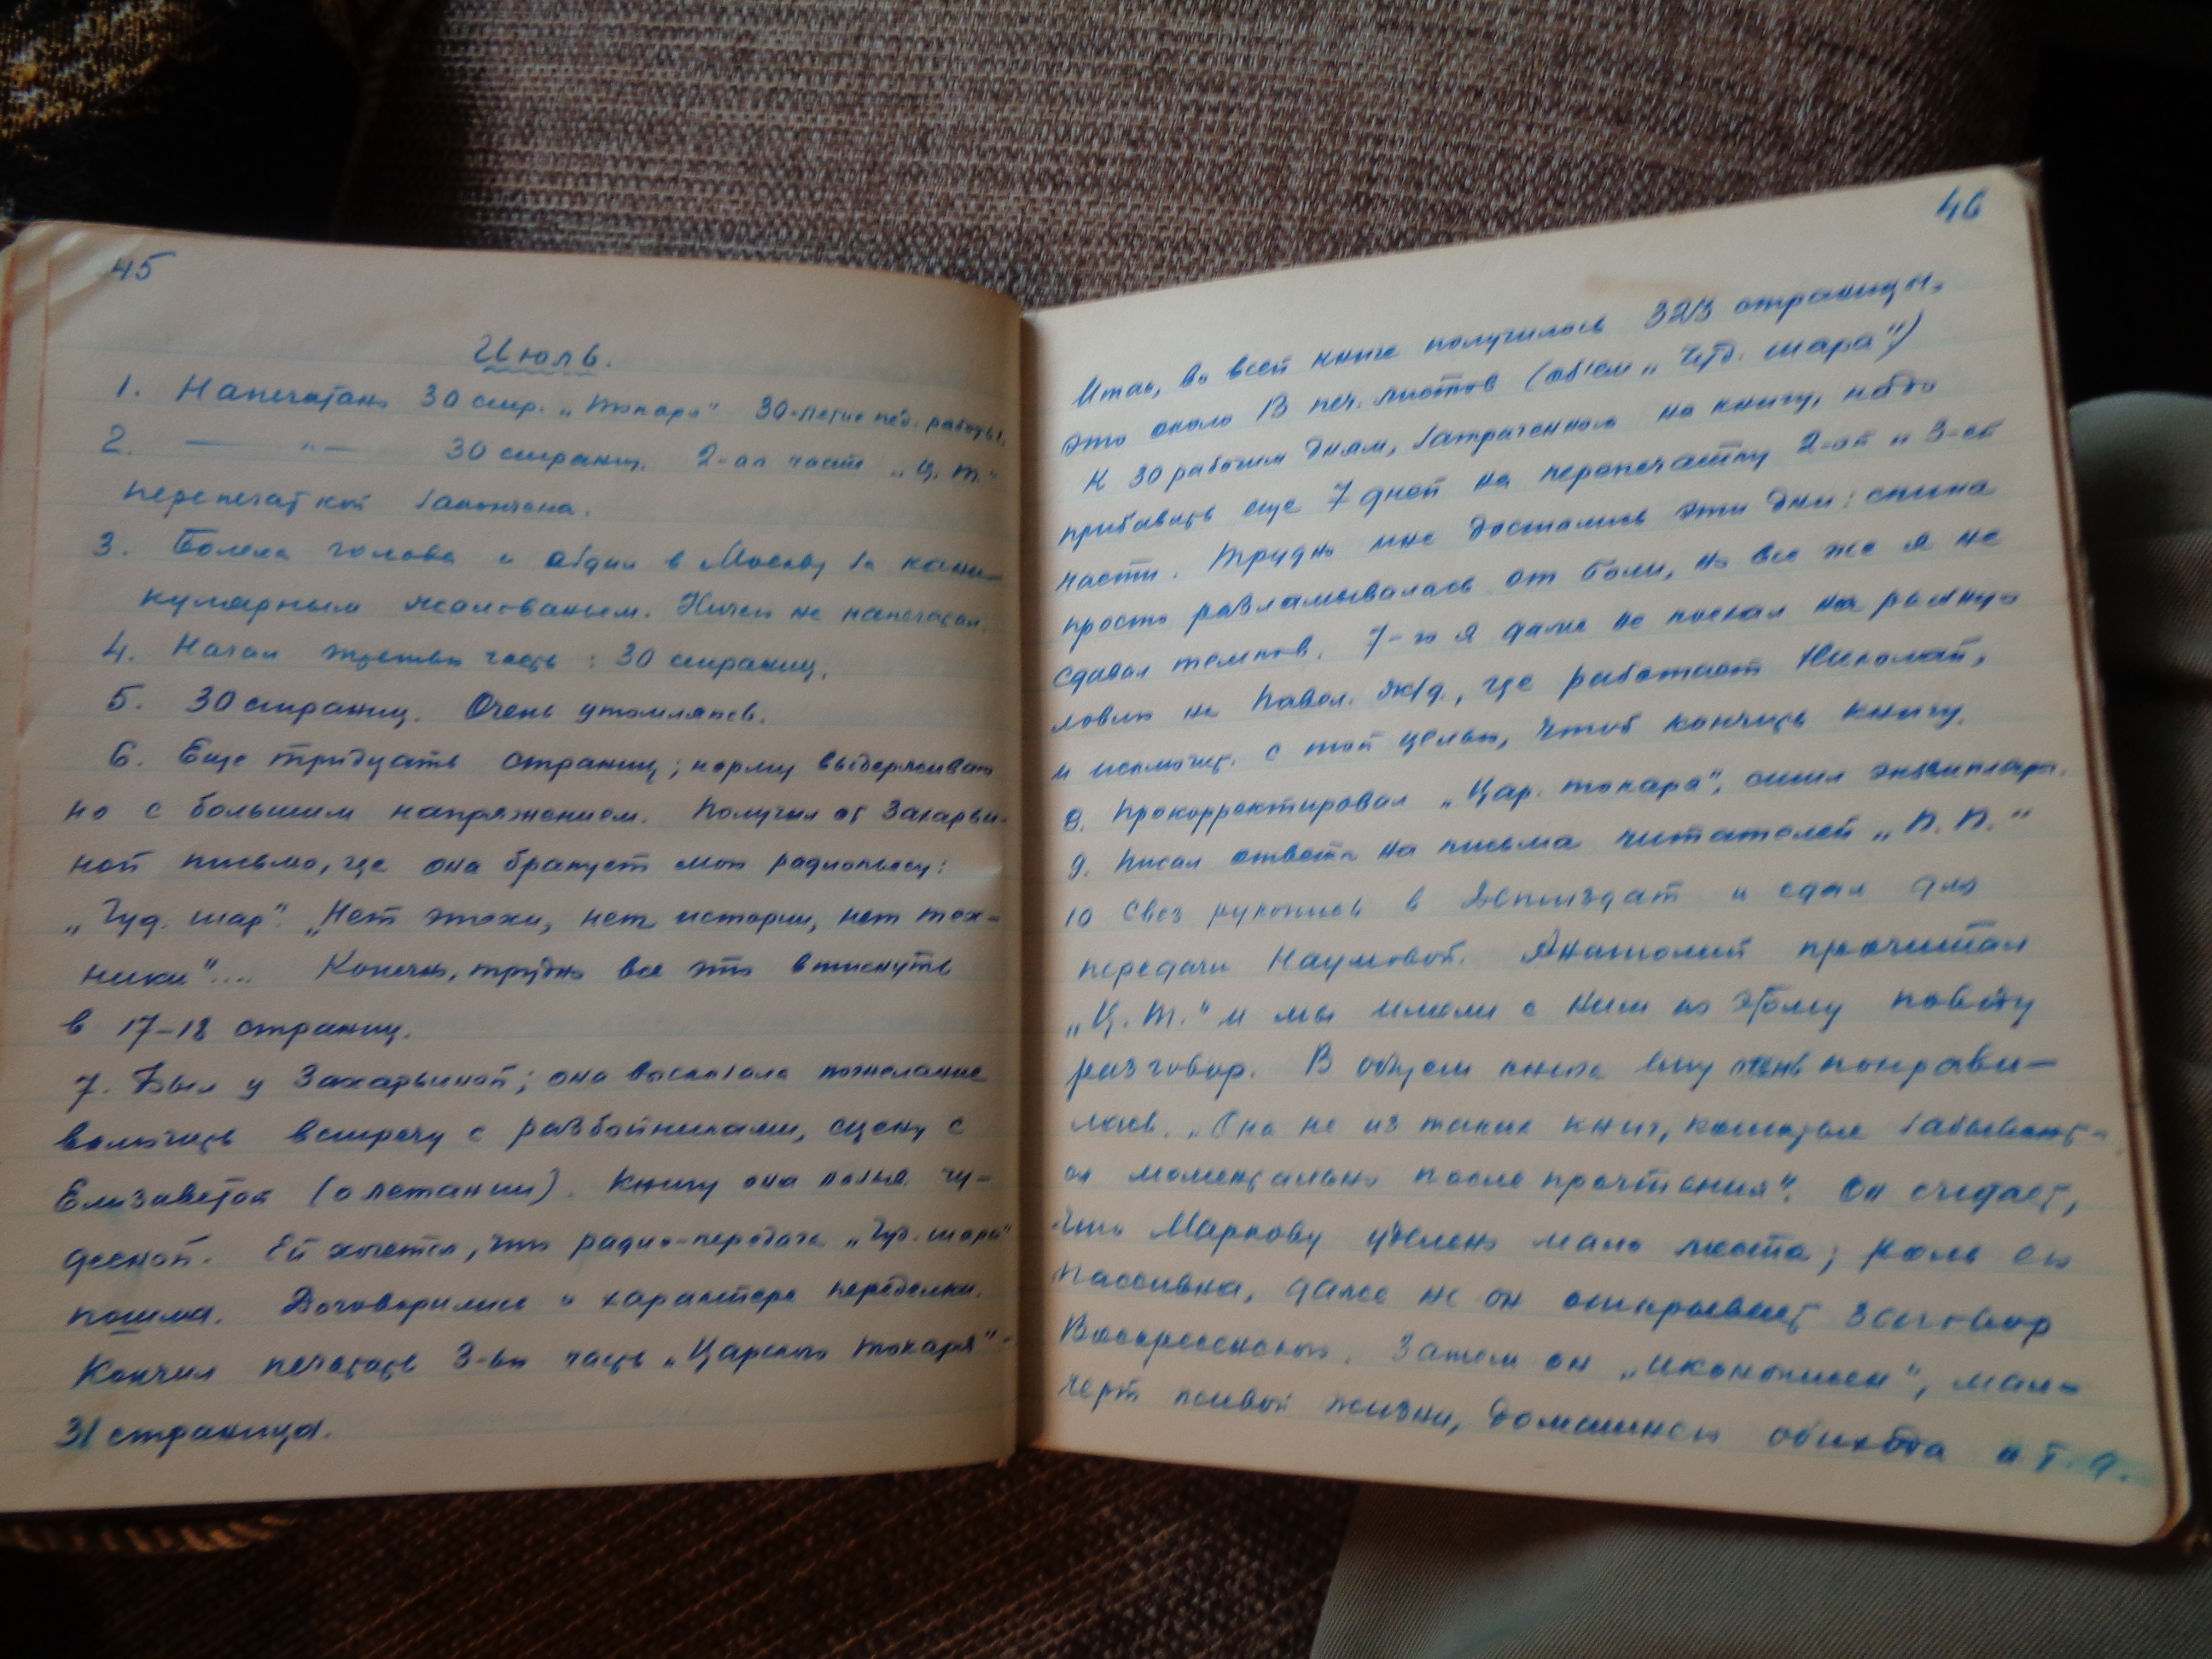 45
Июль.
1. Напечатано 30 стр. „Токаря" 30-летие пед. работы.
2. —— „ — 30 страниц. 2-ая часть „Ц. Т."
перепечаткой закончена.
3. Болела голова и ездил в Москву за кани-
кулярным жалованьем. Ничего не напечатал.
4. Начал третью часть: 30 страниц.
5. 30 страниц. Очень утомляюсь.
6. Еще тридцать страниц; норму выдерживаю
но с большим напряжением. Получил от Захарьи-
ной письмо, где она бракует мою радиопьесу:
„Чуд. шар". „Нет эпохи, нет истории, нет тех-
ники".... Конечно, трудно все это втиснуть
в 17-18 страниц.
7. Был у Захарьиной; она высказала пожелание
включить встречу с разбойниками, сцену с
Елизаветой (о летании). Книгу она нашла чу-
десной. Ей хочется, что радио-передача „Чуд. шара"
пошла. Договорились о характере переделки.
Кончил печатать 3-ью часть „Царского токаря" -
31 страница.
46
Итак, во всей книге получилось 323 страницы,
это около 13 печ. листов (об'ем „Чуд. шара")
К 30 рабочим дням, затраченным на книгу, надо
прибавить еще 7 дней на перепечатку 2-ой и 3-ей
части. Трудно мне достались эти дни: спина
просто разламывалась от боли, но все же я не
сдавал темпов. 7-го я даже не поехал на рыбную
ловлю на Павел. ж/д., где работает Николай,
и исключит. с той целью, чтоб кончить книгу.
8. Прокорректировал „Цар. токаря", сшил экземпляры.
9. Писал ответы на письма читателей „П. П."
10 Свез рукопись в Детиздат и сдал для
передачи Наумовой. Анатолий прочитал
„Ц. Т." и мы имели с ним по этому поводу
разговор. В общем книга ему очень понрави-
лась. „Она не из таких книг, которые забывают-
ся моментально после прочтения". Он считает,
что Маркову уделено мало места; роль его
пассивна, даже не он открывает заговор
Воскресенского. Затем он „иконописен", мало
черт живой жизни, домашнего обихода и т. д.